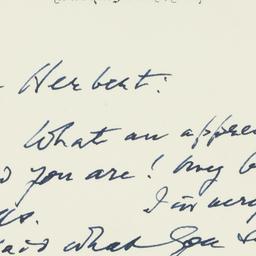 Herbert:
What an appre
you are! my b
I'm very
said what you